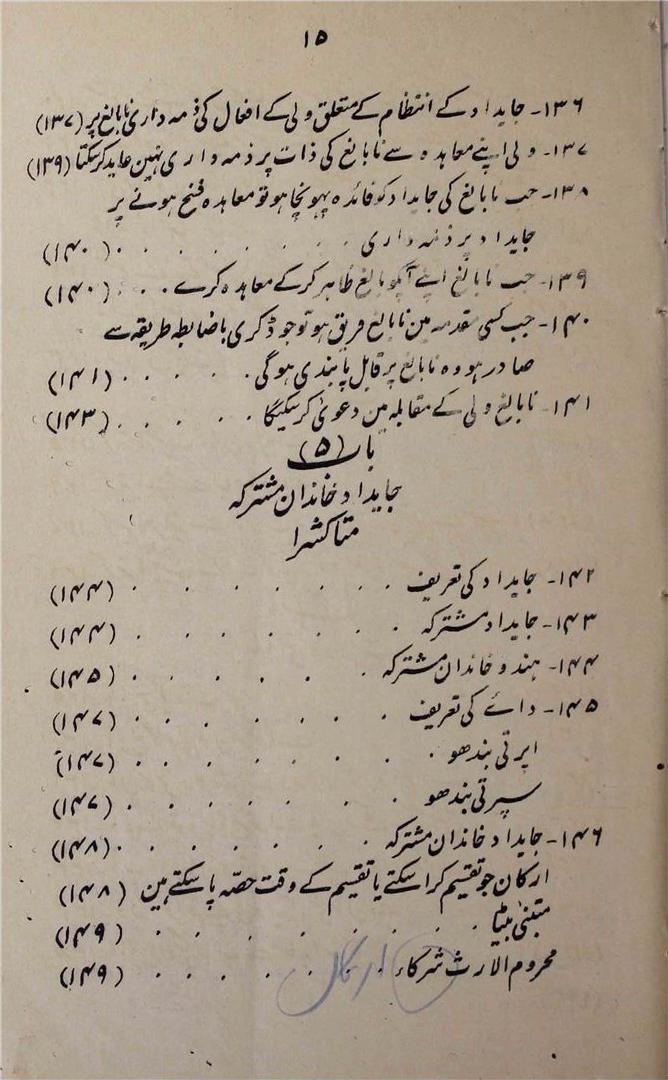 ۱۵
۱۳۶۔ جایداد کے انتظام کے متعلق ولی کے افعال کی ذمہ داری نابالغ پر (۱۳۷)
۱۳۷۔ ولی اپنے معاہدہ سے نابالغ کی ذات پر ذمہ واری نہین عاید کرسکتا (۱۳۹)
۱۳۸۔ جب نابالغ کی جایداد کو فائدہ پہونچا ہو تو معاہدہ فسخ ہونے پر
جایداد پر ذمہ داری . . . . . . . (۱۴۰)
۱۳۹۔ جب نابالغ اپنے آپکو بالغ ظاہر کرکے معاہدہ کرے . . . (۱۴۰)
۱۴۰۔ جب کسی مقدمہ مین نابالغ فریق ہو تو جو ڈگری باضابطہ طریقہ سے
صادر ہو وہ نابالغ پر قابل پابندی ہوگی . . . . . (۱۴۱)
۱۴۱۔ نابالغ ولی کے مقابلہ مین دعویٰ کرسکیگا . . . . . (۱۴۳)
باب (۵)
جایداد خاندان مشترکہ
متاکشرا
۱۴۲۔ جایداد کی تعریف . . . . . . . (۱۴۴)
۱۴۳۔ جایداد مشترکہ . . . . . . . (۱۴۴)
۱۴۴۔ ہندو خاندان مشترکہ . . . . . . (۱۴۵)
۱۴۵۔ دائے کی تعریف . . . . . . . (۱۴۷)
اپرتی بندھو . . . . . . . (۱۴۷)
سپرتی بندھو . . . . . . . (۱۴۷)
۱۴۶۔ جایداد خاندان مشترکہ . . . . . . . (۱۴۸)
ارکان جو تقسیم کراسکتے یا تقسیم کے وقت حصہ پاسکتے ہین (۱۴۸)
متبنیٰ بیٹا . . . . . . . (۱۴۹)
محروم الارث شرکاء . ارکان . . . . (۱۴۹)